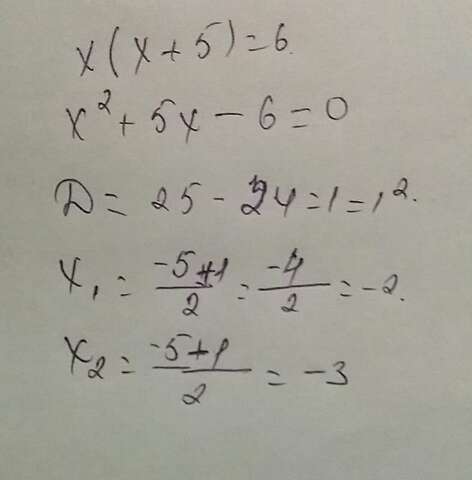 x(x+5)=6.
x²+5x-6=0
D=25-24=1=1².
x₁=(-5+1)/2=-4/2=-2.
x₂=(-5+1)/2=-3